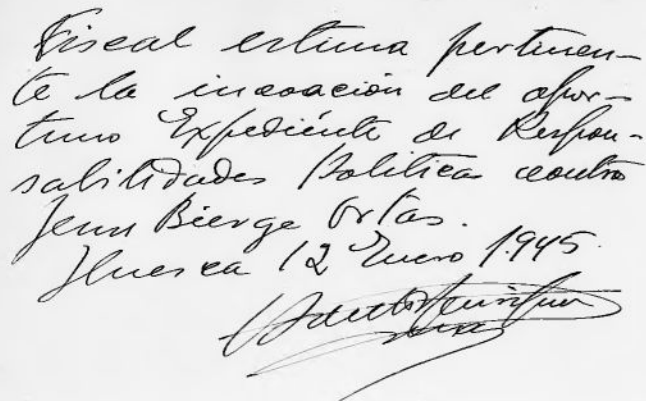 Fiscal estima pertinen-
te la incoación del opor-
tuno Expediente de Respon-
sabilidades Politicas contra
Bierge Ortas.
Huesca 12 Enero 1.945.